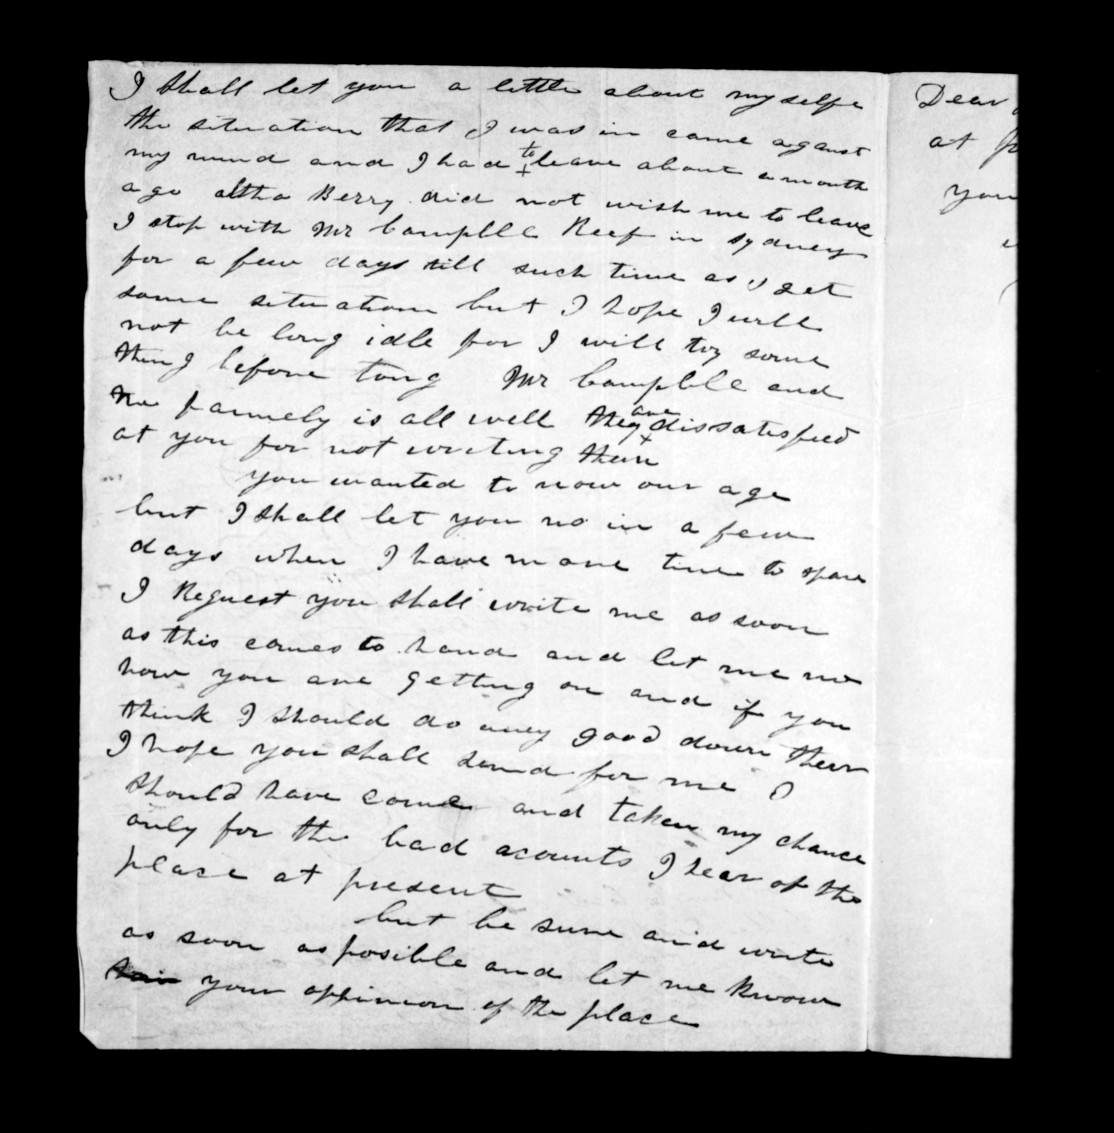 I shall let you a little about my selfe
the situation that I was in came against
my mind and I had to leave about a month
ago altho Berry did not wish me to leave
I stop with Mr Campble Reef in Sydney
for a few days till such time as I get
some situation but I hope I will
not be long idle for I will try some
thing before long Mr Campble and
famely is all well they are dissatisfied
at you for not writing them
you wanted to now our age
but I shall let you no in a few
days when I have more time to spare
I Request you shall write me as soon
as this comes to hand and let me no
how you are getting on and if you
think I should do aney good down thear
I hope you shall send for me I
should have come and taken my chance
only for the bad acounts I hear of the
place at present
but be sure and write
as soon as posible and let me know
your oppinion of the place
Dear
at
you